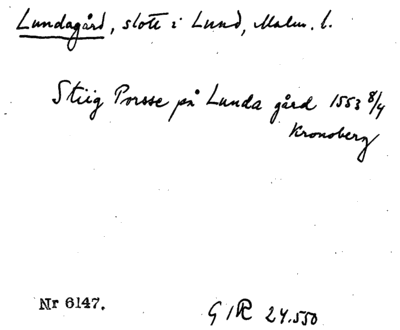 Lundagård, slott i Lund, Malm. l.
Stiig Porsse på Lunda gård 1553 8/4
Kronoberg
Nr 6147.
G I R 24.550